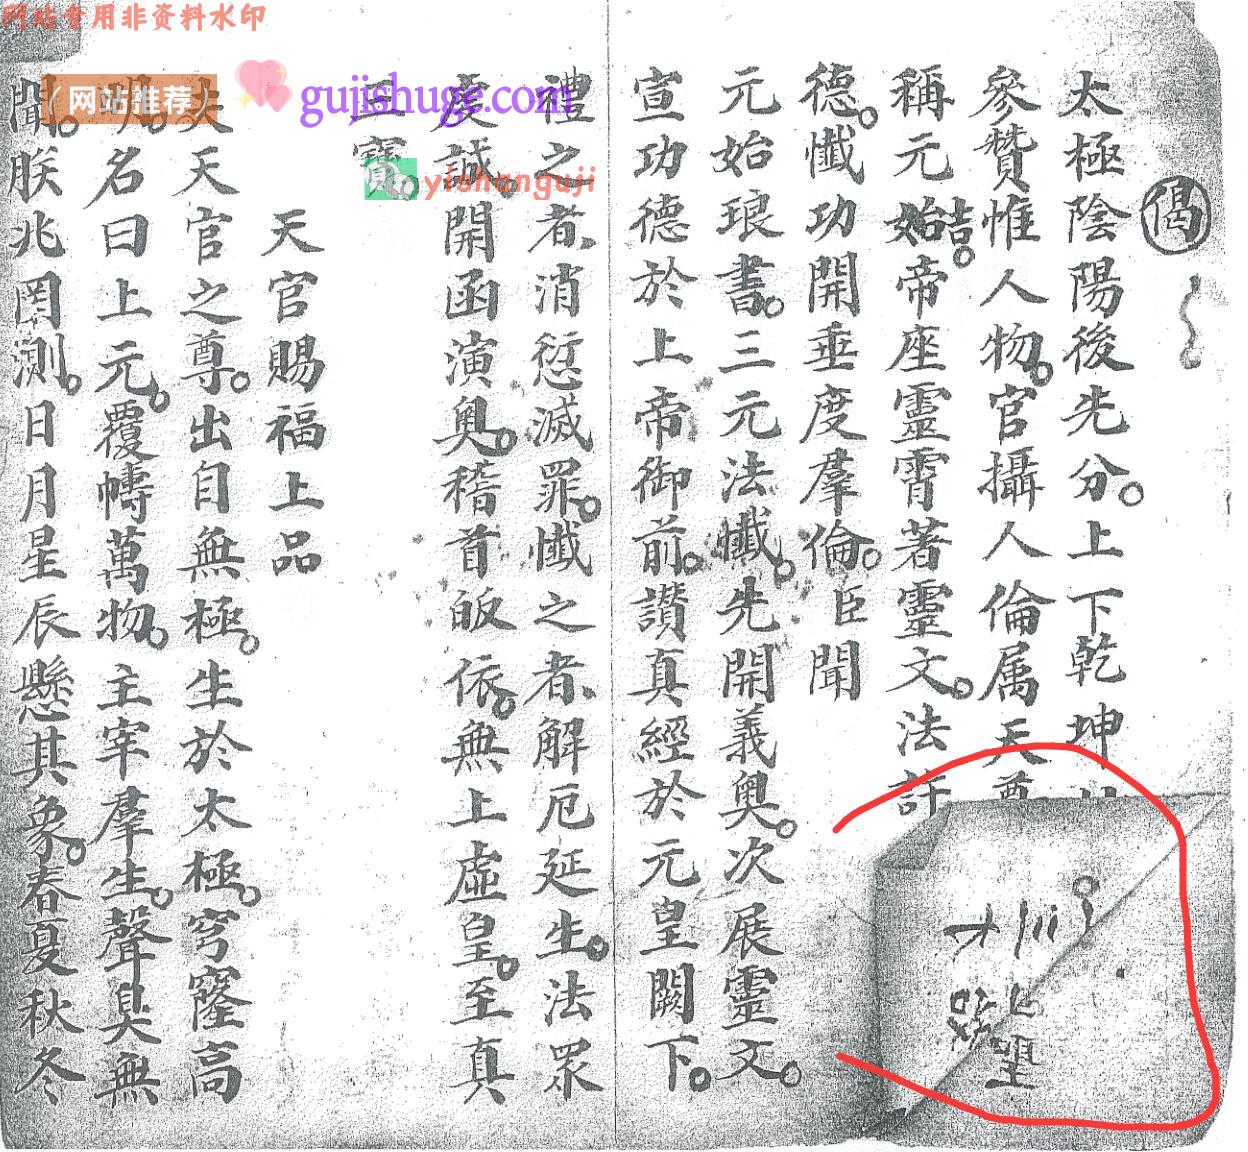 网站专用非资料水印
（网站推荐）
gujishuge.com
yishanguji
偈
太極陰陽後先分上下乾坤
參贊惟人物官攝人倫属天尊
稱元始吉帝座靈霄著靈文法許
德懺功開垂度羣倫臣聞
元始琅書三元法懺先開義奥次展靈文
宣功德於上帝御前讃真經於元皇闕下
禮之者消愆滅罪懺之者解厄延生法眾
虔誠開函演奥稽首皈依無上虛皇至真
三寶
天官賜福上品
夫天官之尊出自無極生於太極穹窿高
名曰上元覆幬萬物主宰羣生聲臭無
聞朕兆罔測日月星辰懸其象春夏秋冬